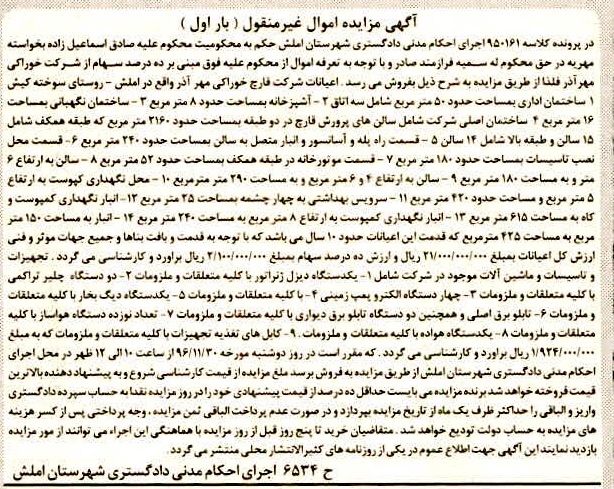 آگهی مزایده اموال غیرمنقول ( بار اول )
در پرونده کلاسه ۹۵۰۱۶۱ اجرای احکام مدنی دادگستری شهرستان املش حکم به محکومیت محکوم علیه صادق اسماعیل زاده بخواسته
مهریه در حق محکوم له سمیه فرازمند صادر و با توجه به تعرفه اموال از محکوم علیه فوق مبنی بر ده درصد سهام از شرکت خوراکی
مهر آذر فلذا از طریق مزایده به شرح ذیل بفروش می رسد. اعیانات شرکت قارچ خوراکی مهر آذر واقع در املش - روستای سوخته کیش
۱ ساختمان اداری بمساحت حدود ۵۰ متر مربع شامل سه اتاق ۲ - آشپزخانه بمساحت حدود ۸ متر مربع ۳ - ساختمان نگهبانی بمساحت
۱۶ متر مربع ۴ ساختمان اصلی شرکت شامل سالن های پرورش قارچ در دو طبقه بمساحت حدود ۲۱۶۰ متر مربع که طبقه همکف شامل
۱۵ سالن و طبقه بالا شامل ۱۴ سالن ۵ - قسمت راه پله و آسانسور و انبار متصل به سالن بمساحت حدود ۲۴۰ متر مربع ۶- قسمت محل
نصب تاسیسات بمساحت حدود ۱۸۰ متر مربع ۷ - قسمت موتورخانه در طبقه همکف بمساحت حدود ۵۲ متر مربع ۸ - سالن به ارتفاع ۶
متر و به مساحت ۱۸۰ متر مربع ۹ - سالن به ارتفاع ۴ و ۶ متر مربع و به مساحت ۲۹۰ متر مترمربع ۱۰ - محل نگهداری کپوست به ارتفاع
۵ متر مربع و مساحت حدود ۴۲۰ متر ۱۱ - سرویس بهداشتی به چهار چشمه بمساحت ۲۵ متر مربع ۱۲- انبار نگهداری کمپوست و
کاه به مساحت ۶۱۵ متر مربع ۱۳ - انبار نگهداری کمپوست به ارتفاع ۸ متر مربع به مساحت ۲۴۰ متر مربع ۱۴ - انبار به مساحت ۱۵۰ متر
مربع به مساحت ۴۲۵ مترمربع که قدمت این اعیانات حدود ۱۰ سال می باشد که با توجه به قدمت و بافت بناها و جمیع جهات موثر و فنی
ارزش کل اعیانات بمبلغ ۲۱/۰۰۰/۰۰۰/۰۰۰ ریال و ارزش ده درصد سهام بمبلغ ۲/۱۰۰/۰۰۰/۰۰۰ ریال براورد و کارشناسی می گردد . تجهیزات
و تاسیسات و ماشین آلات موجود در شرکت شامل ۱- یکدستگاه دیزل ژنراتور با کلیه متعلقات و ملزومات ۲- دو دستگاه چلیر تراکمی
با کلیه متعلقات و ملزومات ۳- چهار دستگاه الکترو پمپ زمینی ۴- با کلیه متعلقات و ملزومات ۵- یکدستگاه دیگ بخار با کلیه متعلقات
و ملزومات ۶- تابلو برق اصلی و همچنین دو دستگاه تابلو برق دیواری با کلیه متعلقات و ملزومات ۷- تعداد نوزده دستگاه هواساز با کلیه
متعلقات و ملزومات ۸ - یکدستگاه هواده با کلیه متعلقات و ملزومات . ۹- کابل های تغذیه تجهیزات با کلیه متعلقات و ملزومات که به مبلغ
۱/۹۲۴/۰۰۰/۰۰۰ ریال براورد و کارشناسی می گردد . که مقرر است در روز دوشنبه مورخه ۹۶/۱۱/۳۰ از ساعت ۱۰ الی ۱۲ ظهر در محل اجرای
احکام مدنی دادگستری شهرستان املش از طریق مزایده به فروش برسد ملغ مزایده از قیمت کارشناسی شروع و به پیشنهاد دهنده بالاترین
قیمت فروخته خواهد شد برنده مزایده می بایست حداقل ده درصد از قیمت پیشنهادی خود را در روز مزایده نقدا به حساب سپرده دادگستری
واریز و الباقی را حداکثر ظرف یک ماه از تاریخ مزایده بپردازد و در صورت عدم پرداخت الباقی ثمن مزایده ، وجه پرداختی پس از کسر هزینه
های مزایده به حساب دولت تودیع خواهد شد . متقاضیان خرید تا پنج روز قبل از روز مزایده با هماهنگی این اجراء می توانند از مور مزایده
بازدید نمایند این آگهی جهت اطلاع عموم در یکی از روزنامه های کثیرالانتشار محلی منتشر می گردد.
ح ۶۵۳۴ اجرای احکام مدنی دادگستری شهرستان املش